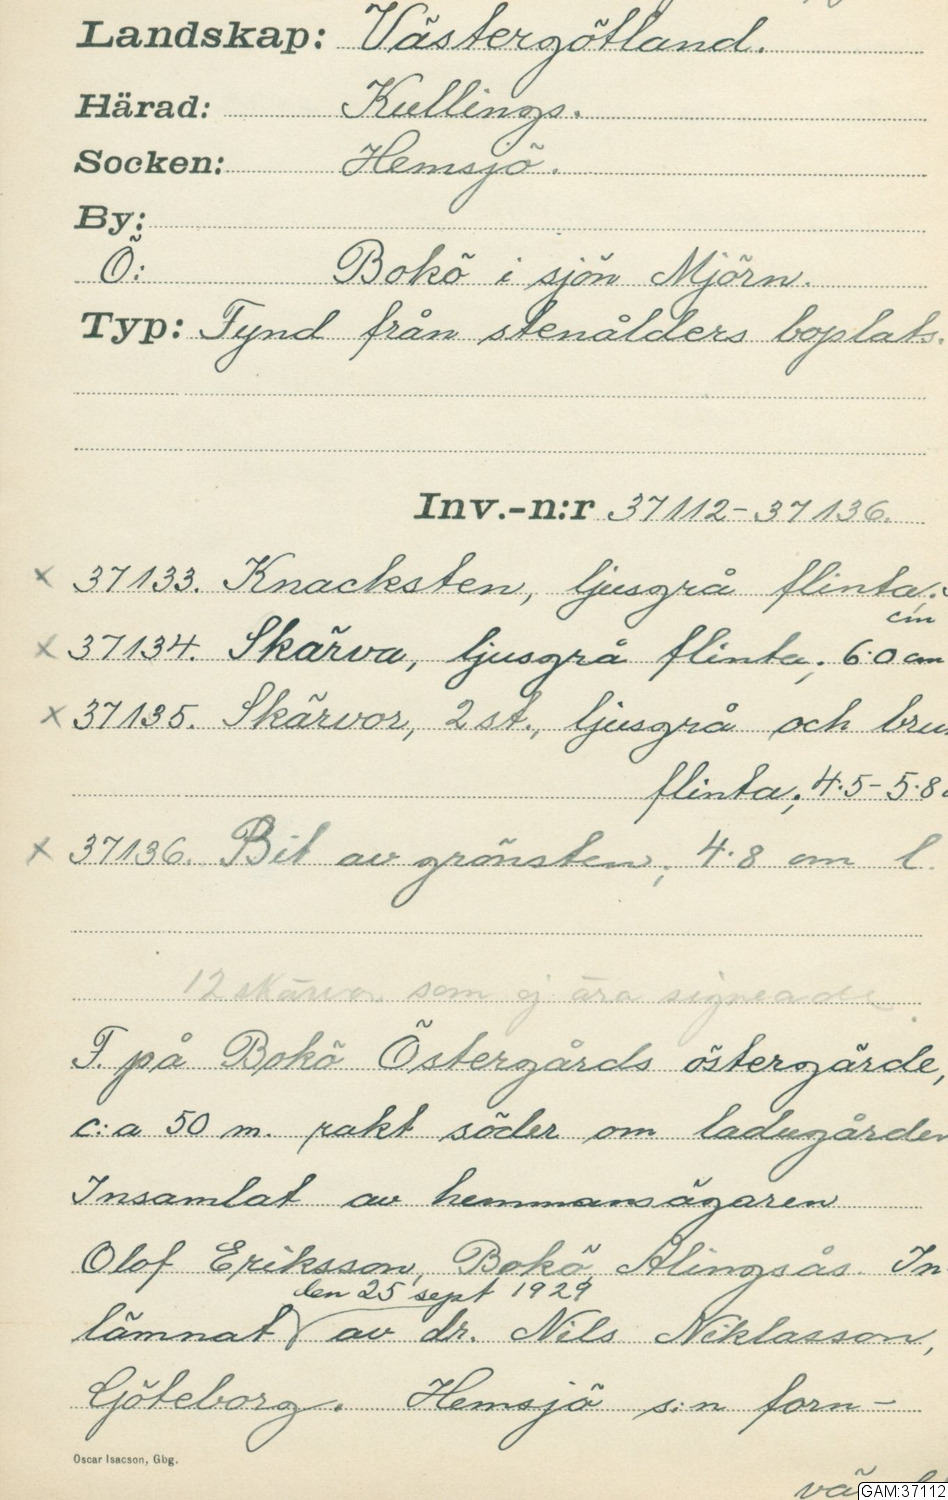 Landskap: Västergötland.
Härad: Kullings.
Socken: Hemsjö.
By:
Ö: Bokö i sjön Mjörn.
Typ: Fynd från stenålders boplats.
Inv.-n:r 37112-37136.
x 37133. Knacksten, ljusgrå flinta;
cm
x 37134. Skärva, ljusgrå flinta; 6.0 cm
x 37135. Skärvor, 2 st., ljusgrå och bru
flinta; 4.5-5.8
x 37136. Bit av grönsten; 4.8 cm l.
12 skärvor som ej äro signerade.
F. på Bokö Östergårds östergärde,
c:a 50 m. rakt söder om ladugården
Insamlat av hemmansägaren
Olof Eriksson, Bokö, Alingsås. In
den 25 sept 1929
lämnat av dr. Nils Niklasson,
Göteborg. Hemsjö s:n forn-
Oscar Isacson, Gbg.
GAM:37112